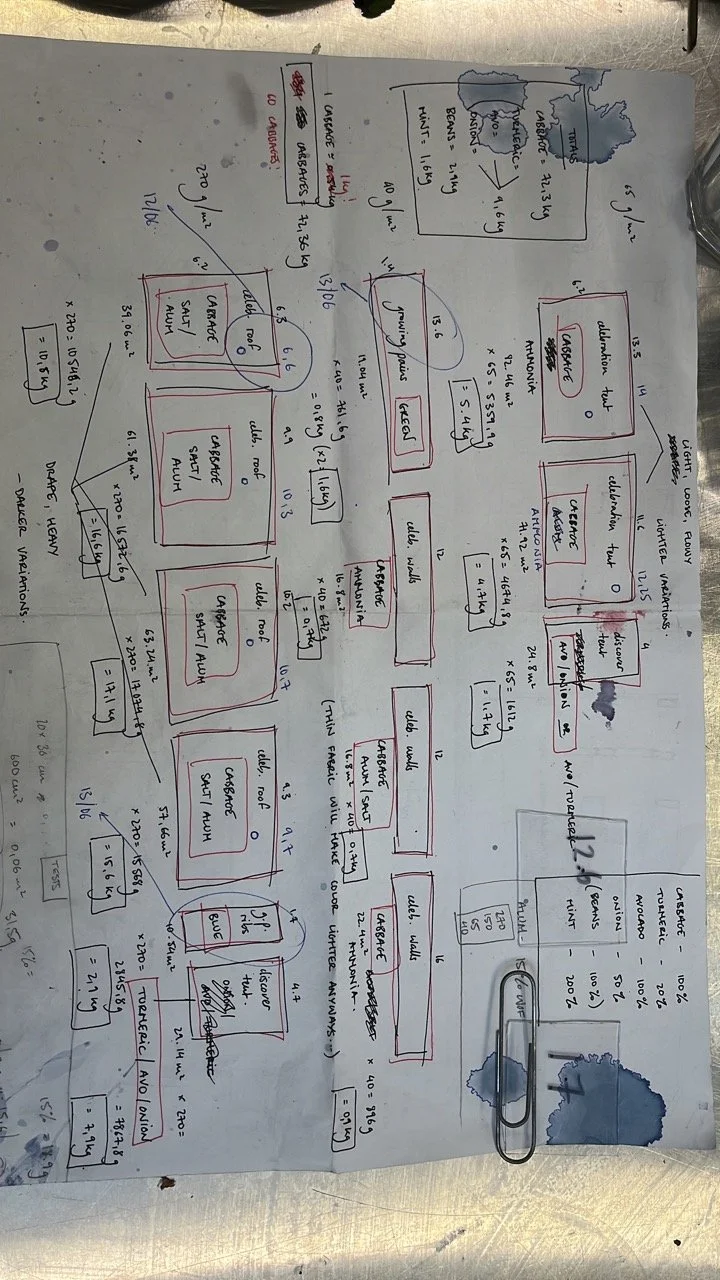 65 g/m²
TOTALS
CABBAGE = 72,3 kg
TURMERIC =
AVO =
ONION =
9,6 kg
BEANS = 2,9 kg
MINT = 1,6 kg
LIGHT, LOOSE, FLOWY
LIGHTER VARIATIONS.
13.5
14
6.2
celebration tent
CABBAGE
AMMONIA
82.46 m²
× 65 = 5359,9g
= 5.4 kg
11.6
12,25
celebration tent
CABBAGE
AMMONIA
71.92 m²
× 65 = 4674,8g
= 4.7 kg
4
discover
tent
AVO / ONION OR
AVO / TURMERIC
24.8 m²
× 65 = 1612g
= 1.7 kg
CABBAGE - 100%
TURMERIC - 20%
AVOCADO - 100%
ONION - 50%
(BEANS - 100%)
MINT - 200%
12.6
17
ALUM -
15% WOF
270
150
65
40
40 g/m²
13/06
1.4
13.6
growing pains
GREEN
19.04 m²
× 40 = 761,6g
= 0,8kg (×2 = 1,6kg)
12
celeb. walls
CABBAGE
AMMONIA
16.8 m²
× 40 = 672g
= 0,7kg
12
celeb. walls
CABBAGE
ALUM / SALT
16.8 m² × 40 = 0,7kg
16
celeb. walls
CABBAGE
AMMONIA.
22.4 m²
× 40 = 896g
= 0,9 kg
(THIN FABRIC WILL MAKE COLOR LIGHTER ANYWAYS...)
1 CABBAGE =
1 kg!
CABBAGES = 72,36 kg
60 CABBAGES!
270 g/m²
12/06
6.2
6.3
6,6
celeb. roof
CABBAGE
SALT /
ALUM
39.06 m²
× 270 = 10546,2g
= 10,5 kg
9.9
10,3
celeb. roof
CABBAGE
SALT /
ALUM
61.38 m²
× 270 = 16572,6g
= 16,6 kg
10.2
10,7
celeb. roof
CABBAGE
SALT / ALUM
63.24 m²
× 270 = 17074,8g
= 17,1 kg
9.3
9,7
celeb. roof
CABBAGE
SALT / ALUM
57.66 m²
× 270 = 15568g
= 15,6 kg
1.7
g.p.
ribs
BLUE
10.54 m²
× 270 =
2845,8g
= 2,9 kg
13/06
4.7
discover
tent.
29.14 m² × 270 =
TURMERIC / AVO / ONION
= 7867,8g
= 7,9 kg
DRAPE, HEAVY
- DARKER VARIATIONS.
TESTS
20 x 30 cm
600 cm² = 0,06 m²
15% =
15% =